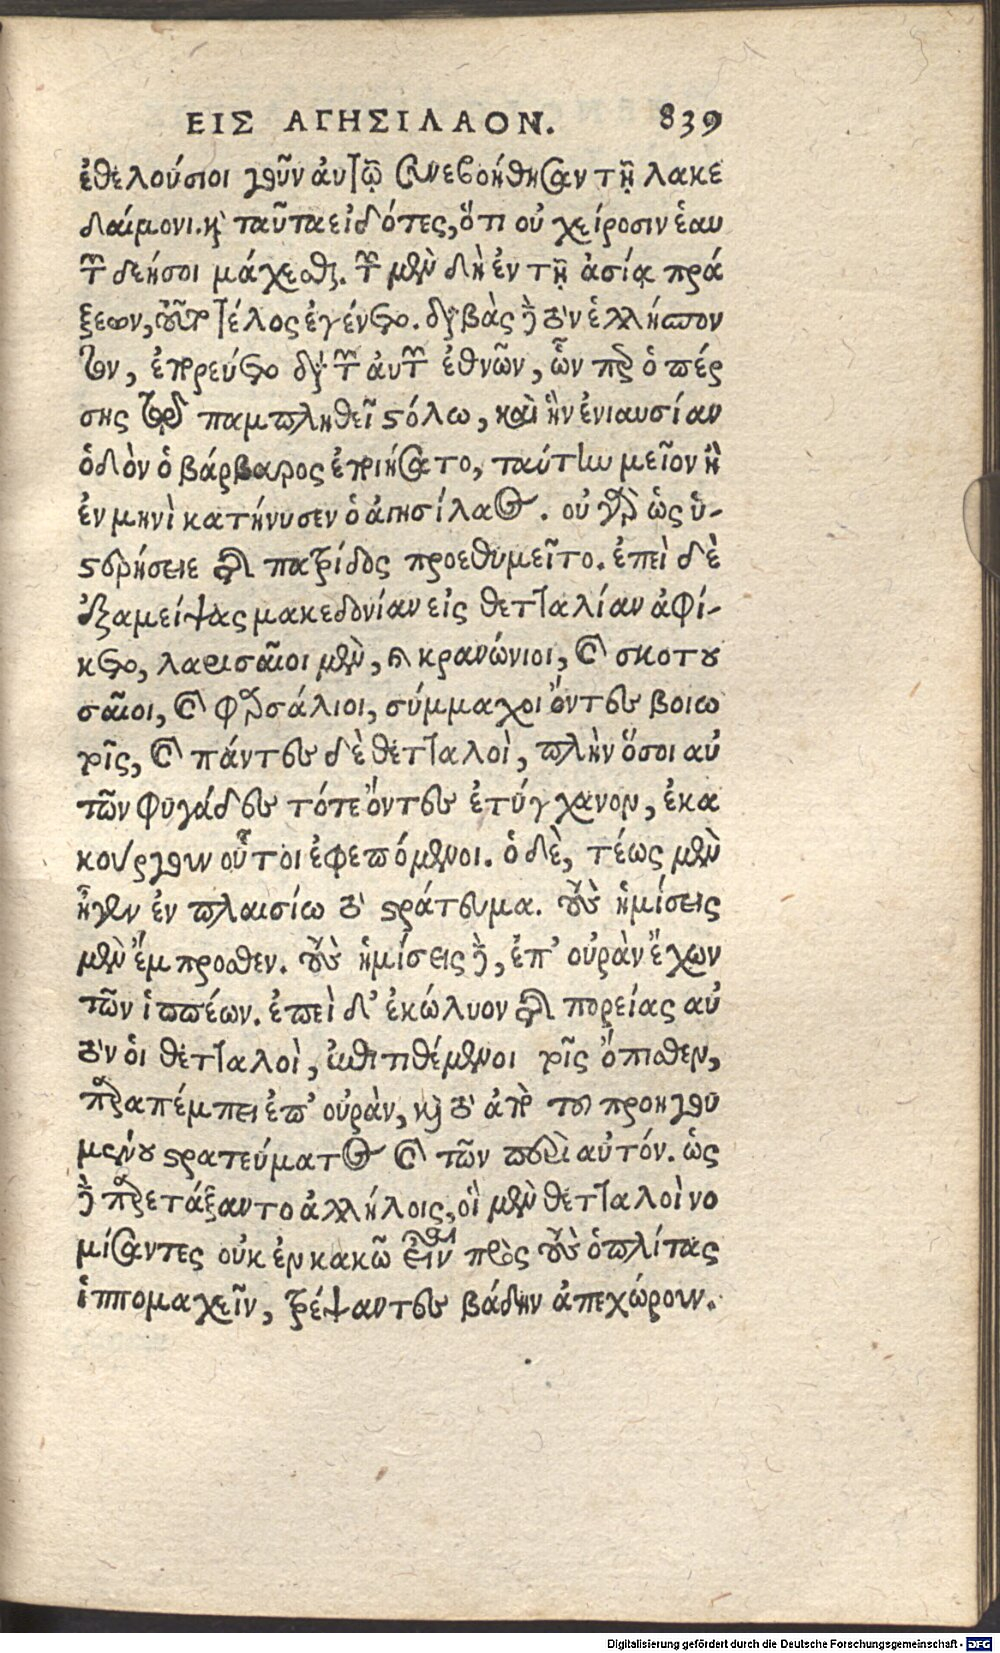 ΕΙΣ ΑΓΗΣΙΛΑΟΝ. 839
ἐθελούσιοι γοῦν αὐτῷ συνεβοήθησαν τῇ λακε
δαίμονι. καὶ ταῦτα εἰδότες, ὅτι οὐ χείροσιν ἑαυ
τῶν δεήσοι μάχεσθαι. τῶν μὲν δὴ ἐν τῇ ἀσίᾳ πρά
ξεων, τοῦτο τέλος ἐγένετο. διαβὰς δὲ τὸν ἑλλήσπον
τον, ἐπορεύετο διὰ τῶν αὐτῶν ἐθνῶν, ὧνπερ ὁ πέρ
σης τῷ παμπληθεῖ στόλω, καὶ ἣν ἐνιαυσίαν
ὁδὸν ὁ βάρβαρος ἐποιήσατο, ταύτην μεῖον ἢ
ἐν μηνὶ κατήνυσεν ὁ ἀγησίλαος. οὐ γὰρ ὡς ὑ-
στερήσειε τῆς πατρίδος προεθυμεῖτο. ἐπεὶ δὲ
ἐξαμείψας μακεδονίαν εἰς θετταλίαν ἀφί-
κετο, λαρισαῖοι μὲν, καὶ κρανώνιοι, καὶ σκοτου
σαῖοι, καὶ φαρσάλιοι, σύμμαχοι ὄντες βοιω
τοῖς, καὶ πάντες δὲ θετταλοὶ, πλὴν ὅσοι αὐ
τῶν φυγάδες τότε ὄντες ἐτύγχανον, ἐκα
κούργουν οὗτοι ἐφεπόμενοι. ὁ δὲ, τέως μὲν
ἦγεν ἐν πλαισίω τὸ στράτευμα. τοὺς ἡμίσεις
μὲν ἔμπροσθεν. τοὺς ἡμίσεις δὲ, ἐπ’ οὐρὰν ἔχων
τῶν ἱππέων. ἐπεὶ δ’ ἐκώλυον τῆς πορείας αὐ
τὸν οἱ θετταλοὶ, ἐπιτιθέμενοι τοῖς ὄπισθεν,
παραπέμπει ἐπ’ οὐρὰν, καὶ τὸ ἀπὸ τοῦ προηγου
μένου στρατεύματος καὶ τῶν περὶ αὐτόν. ὡς
δὲ παρετάξαντο ἀλλήλοις, οἱ μὲν θετταλοὶ νο
μίσαντες οὐκ ἐν κακῶ εἶναι πρὸς τοὺς ὁπλίτας
ἱππομαχεῖν, τρέψαντες βάδην ἀπεχώρουν.
Digitalisierung gefördert durch die Deutsche Forschungsgemeinschaft - DFG